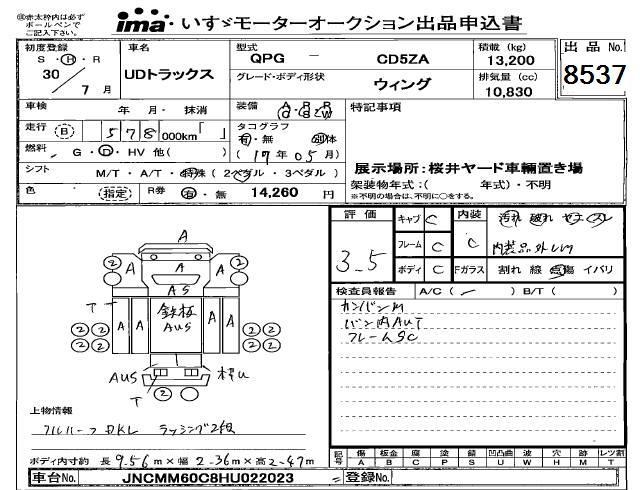 ㊟赤太枠内は必ず
ボールペンで
ご記入下さい。
ima いすゞモーターオークション出品申込書
初度登録 車名 型式 QPG － CD5ZA 積載 (kg) 13,200 出品 No.
S ・ H ・ R 30 / 7 月 UDトラックス グレード・ボディ形状 ウィング 排気量 (cc) 10,830 8537
車検 年 月・ 抹消 装備 A/G R/S R/W 特記事項
走行 (B) 578,000km「 」 タコグラフ 有・無 別体
燃料 G ・ D ・ HV 他( ) (17年05月) 展示場所：桜井ヤード車輌置き場
シフト M/T ・ A/T ・ 特殊 (2ペダル ・ 3ペダル) 架装物年式：( 年式)・不明
色 指定 R券 有・無 14,260 円 ※不明の場合は、不明に○をする。
評価 3.5 キャブ C 内装 C 汚れ 破れ
フレーム C 内装品外し
ボディ C Fガラス 割れ 線 点傷 イバリ
検査員報告 A/C ( ) B/T ( )
カンバン
バン内AUT
フレームSC
A
② A A ②
AS
T
A A 鉄板 AUS A A
② ② ② ②
② ② ② ②
AUS
T ②
上物情報
ラッシング2段
ボディ内寸約 長 9.56 m×幅 2.36 m×高 2.47 m
記号 傷 A 板金 B 腐 C 塗 P 錆 S 凹凸曲 U 波 W 穴 H 跡 M レツ割 T
車台No. JNCMM60C8HU022023 登録No.